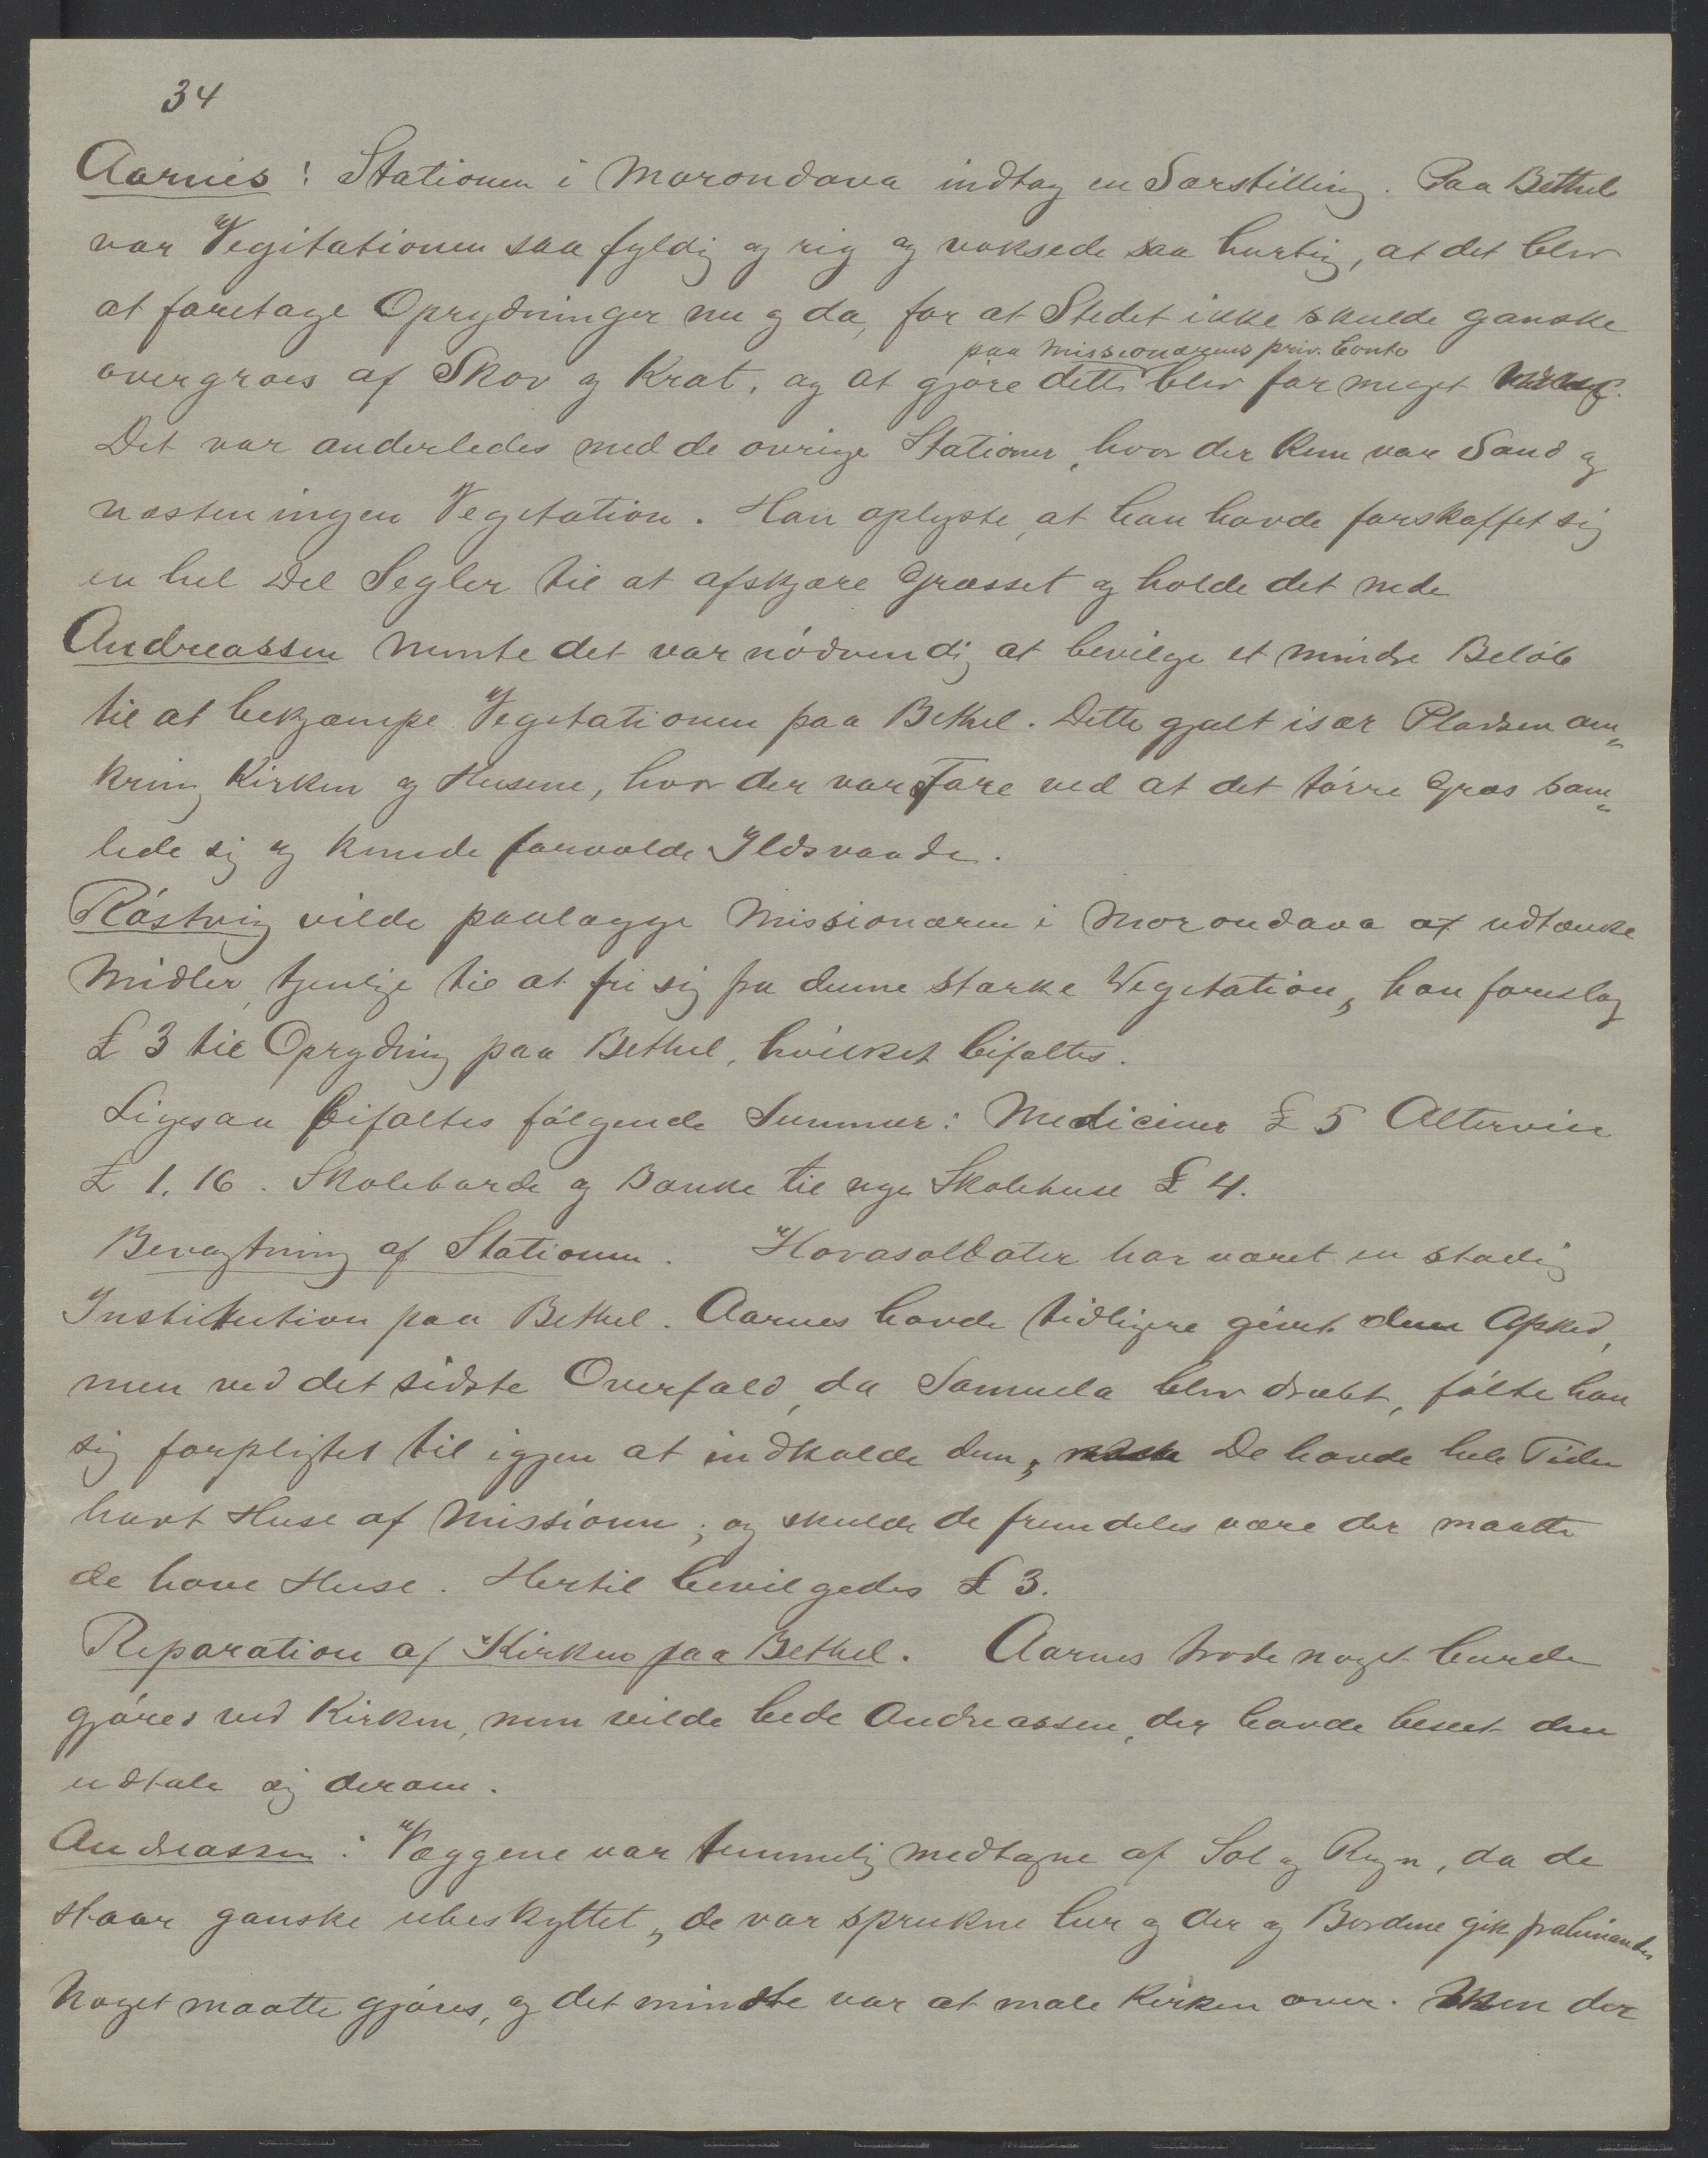 34
Aarnes: Stationen i Morondava indtog en Særstilling. Paa Bethel
var Vegitationen saa fyldig og rig og voksede saa hurtig, at det blev
at foretage Oprydninger nu og da, for at Stedet ikke skulde ganske
paa Missionærens priv. Conto
overgroes af Skov og Krat, og at gjøre dette blev for meget
Det var anderledes med de øvrige Stationer, hvor der kun var Sand og
næsten ingen Vegetation. Han oplyste, at han havde forskaffet sig
en hel Del Segler til at afskjære Græsset og holde det nede
Andreassen mente det var nødvendig at bevilge et mindre Beløb
til at bekjæmpe Vegetationen paa Bethel. Dette gjalt især Pladsen om„
kring Kirken og Husene, hvor der var Fare ved at det tørre Græs sam„
lede sig og kunde forvolde Ildsvaade.
Røstvig vilde paalægge Missionæren i Morondava at udtænke
Midler, tjenlige til at fri sig fra denne stærke Vegetation, han foreslog
£ 3 til Oprydning paa Bethel, hvilket bifaltes.
Ligesaa bifaltes følgende Summer: Medicine £ 5 Altervin
£ 1.16. Skoleborde og Bænke til nye Skolehuse £ 4.
Bevogtning af Stationen. Hovasoldater har været en stadig
Institution paa Bethel. Aarnes havde tidligere givet dem Afsked,
men ved det sidste Overfald, da Samuela blev dræbt, følte han
sig forpligtet til igjen at indkalde dem, De havde hele Tiden
havt Huse af Missionen; og skulde de fremdeles være der maatte
de have Huse. Hertil bevilgedes £ 3.
Reparation af Kirken paa Bethel. Aarnes trode noget burde
gjøres ved Kirken, men vilde bede Andreassen, der havde beseet den
udtale sig derom.
Andreassen: Væggene var temmelig medtagne af Sol og Regn, da de
staar ganske ubeskyttet, de var sprukne her og der og Bordene gik fra hinanden
Noget maatte gjøres, og det mindste var at male Kirken over. Men der